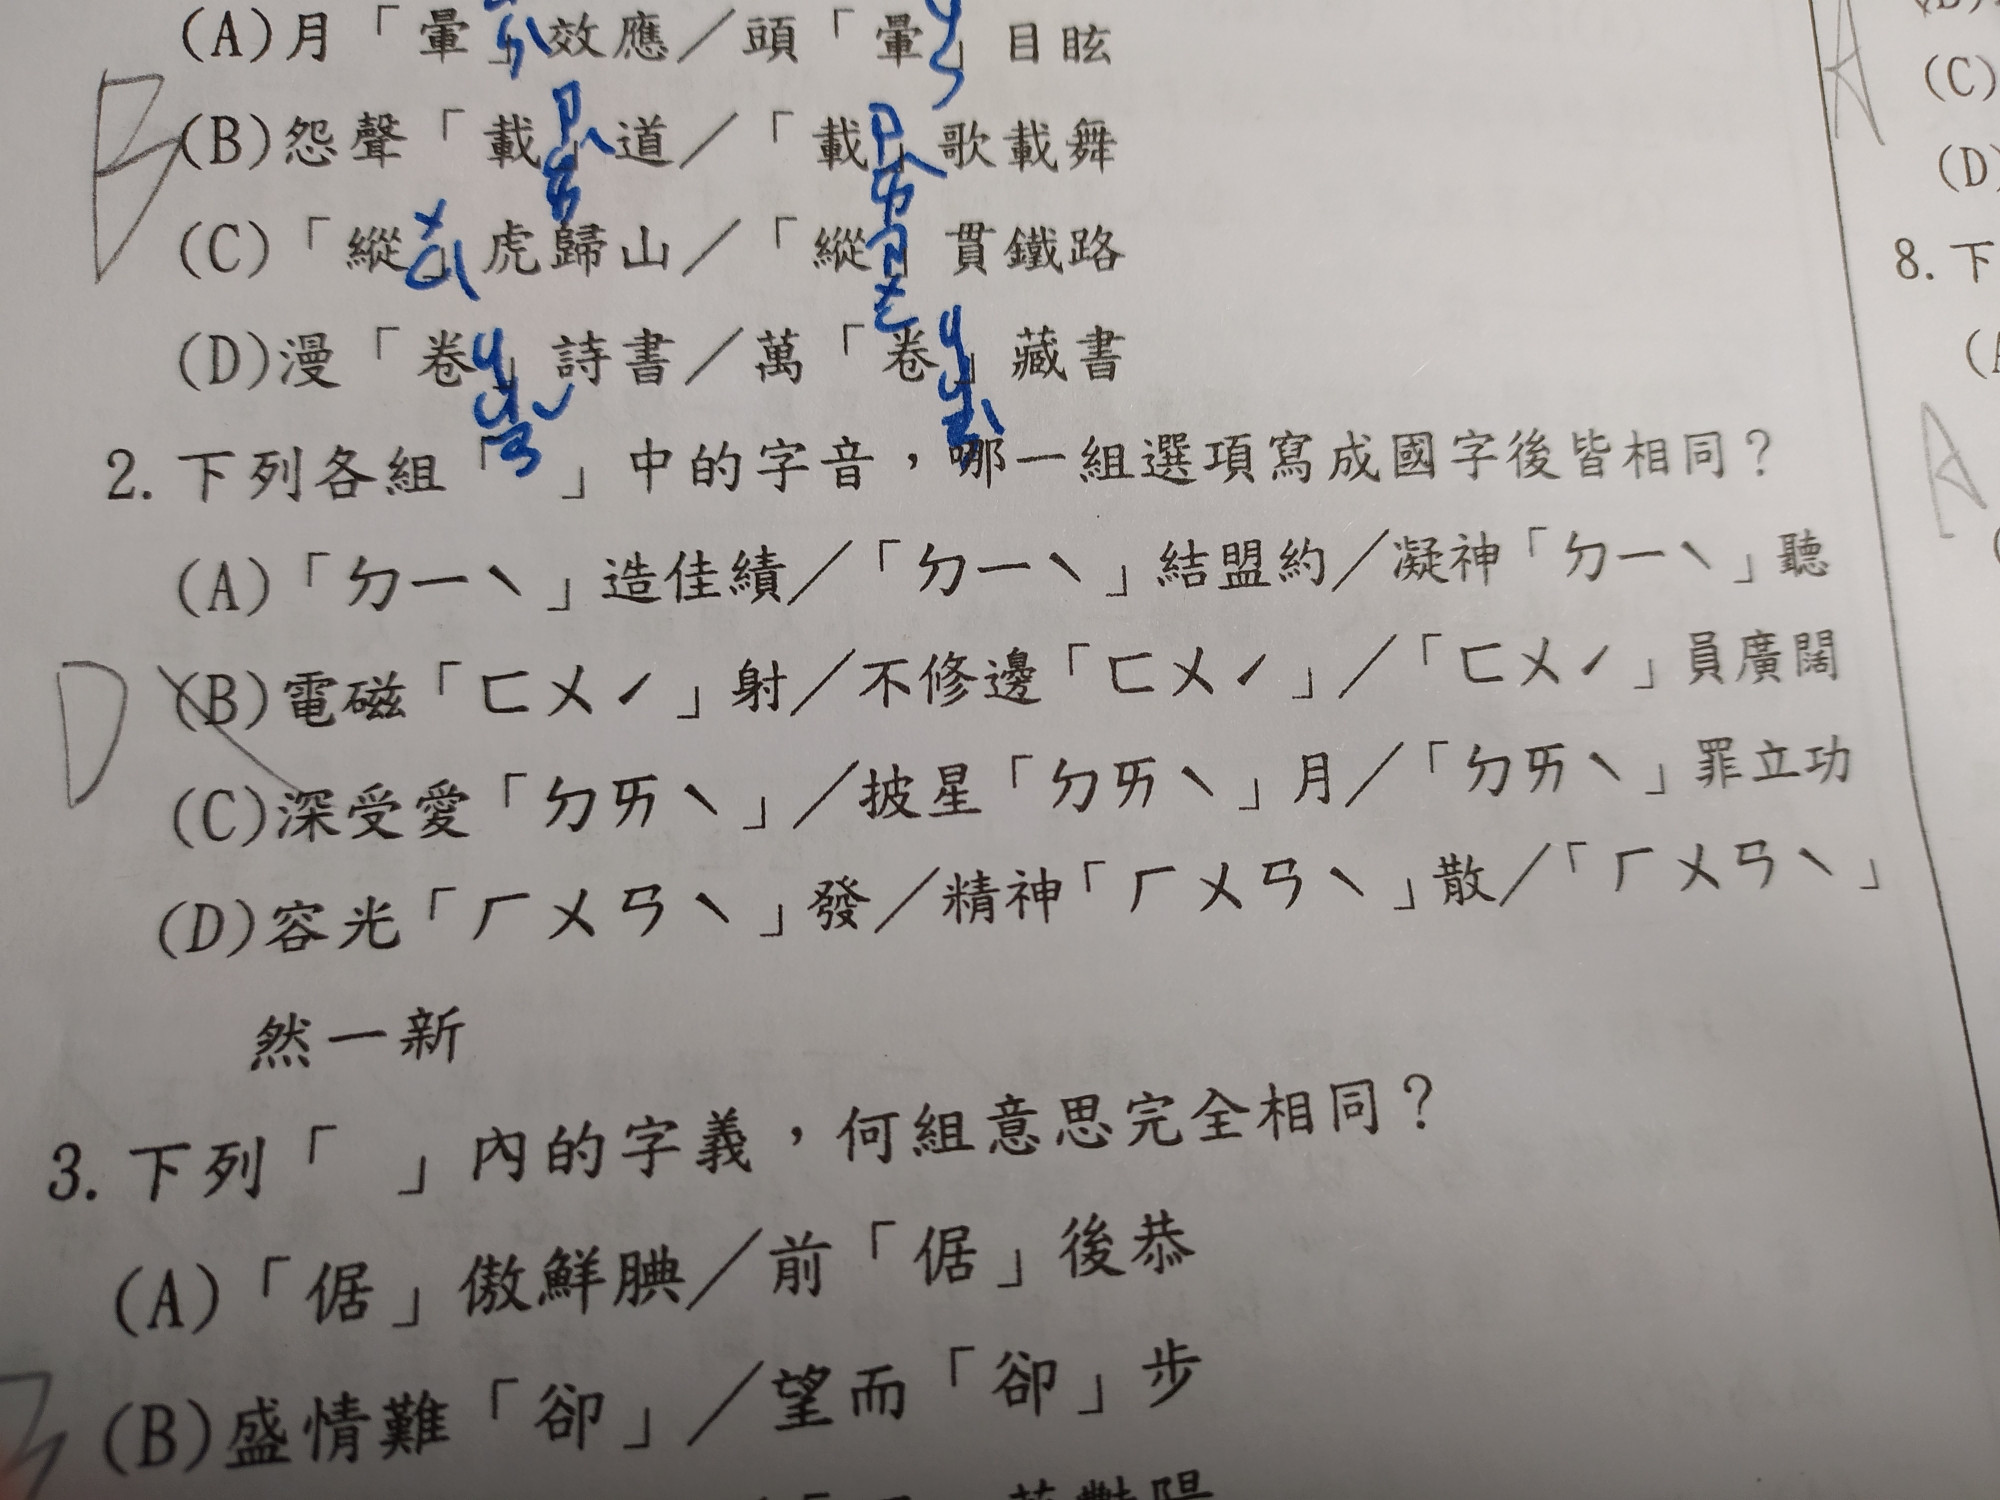 (A)月「暈」效應／頭「暈」目眩
B
(B)怨聲「載」道／「載」歌載舞
(C)「縱」虎歸山／「縱」貫鐵路
(D)漫「卷」詩書／萬「卷」藏書
2. 下列各組「 」中的字音，哪一組選項寫成國字後皆相同？
(A)「ㄉㄧˋ」造佳績／「ㄉㄧˋ」結盟約／凝神「ㄉㄧˋ」聽
D
(B)電磁「ㄈㄨˊ」射／不修邊「ㄈㄨˊ」／「ㄈㄨˊ」員廣闊
(C)深受愛「ㄉㄞˋ」／披星「ㄉㄞˋ」月／「ㄉㄞˋ」罪立功
(D)容光「ㄏㄨㄢˋ」發／精神「ㄏㄨㄢˋ」散／「ㄏㄨㄢˋ」
然一新
3. 下列「 」內的字義，何組意思完全相同？
(A)「倨」傲鮮腆／前「倨」後恭
(B)盛情難「卻」／望而「卻」步
A
(C)
(D)
8. 下
A